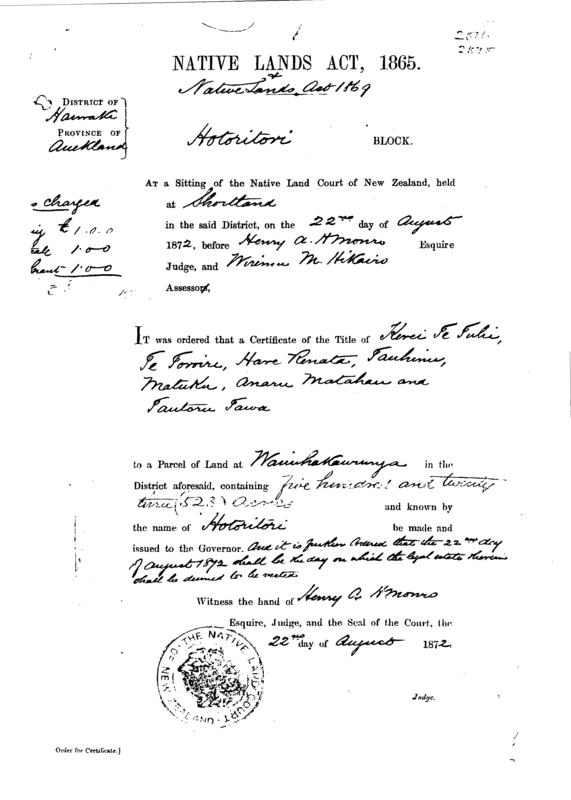 NATIVE LANDS ACT, 1865.
+ Native Lands Act 1869
DISTRICT OF
Hauraki
PROVINCE OF
Auckland
Hotoritori BLOCK.
AT a Sitting of the Native Land Court of New Zealand, held
at Shortland
in the said District, on the 22nd day of August
1872, before Henry A. H Monro Esquire
Judge, and Wiremu M. Hikairo
Assessor,
charged
£1.0.0
1.0.0
1.0.0
IT was ordered that a Certificate of the Title of Kerei Te Tuhi,
Te Hare Renata, Tauhinu,
Matuku, Anaru Matahau and
Tautoru Tawa
to a Parcel of Land at in the
District aforesaid, containing five hundred and twenty
three (523) Acres and known by
the name of Hotoritori be made and
issued to the Governor. And it is further Ordered that the 22nd day
of August 1872 shall be the day on which the legal estate therein
shall be deemed to be vested.
Witness the hand of Henry A. H Monro
Esquire, Judge, and the Seal of the Court, the
22nd day of August 1872.
THE NATIVE LAND COURT OF NEW ZEALAND
Judge.
Order for Certificate.]